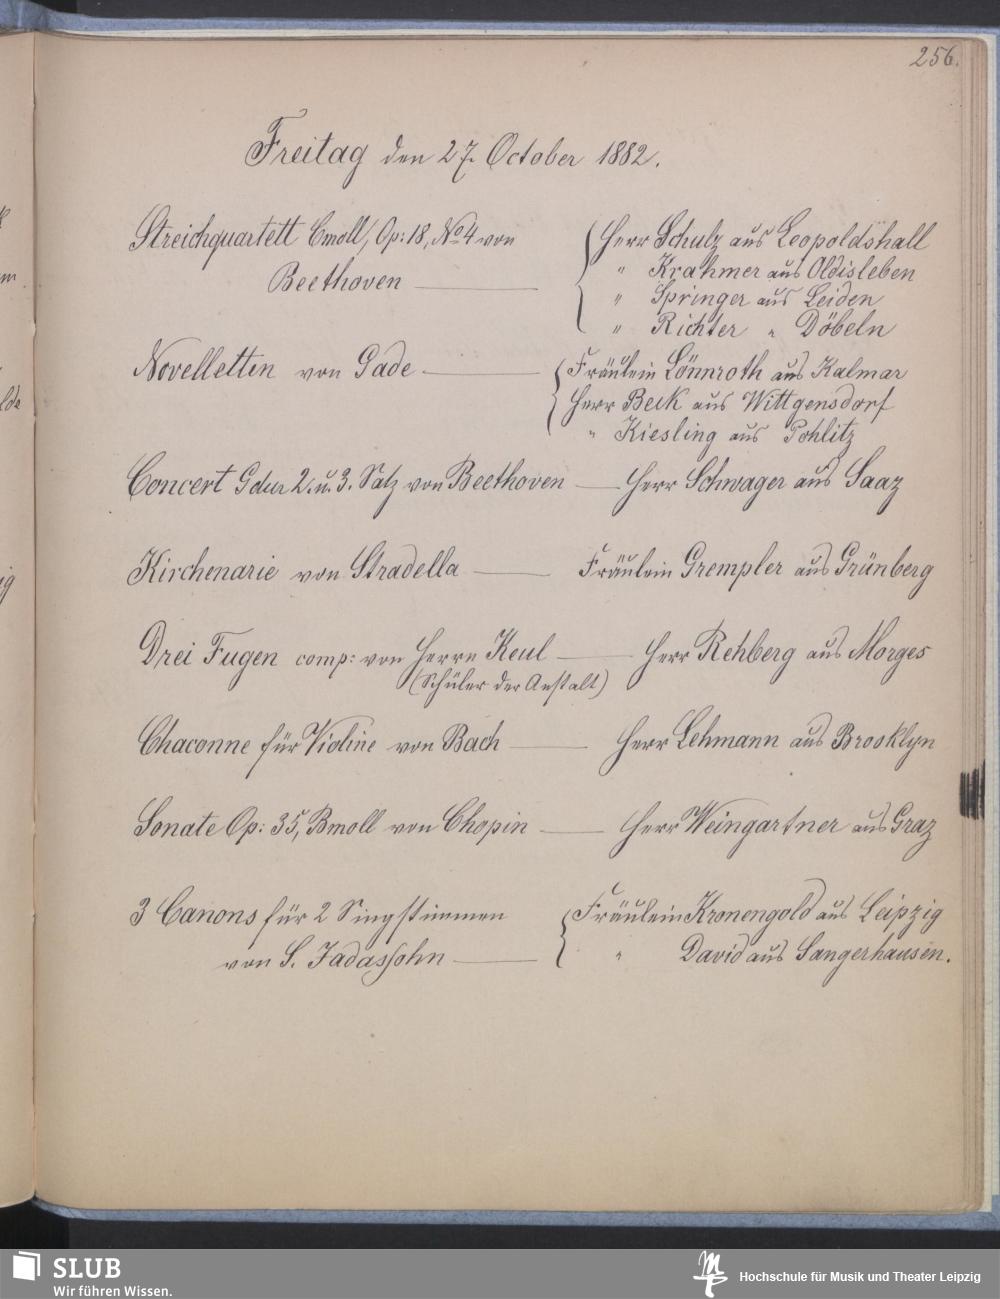 256.
Freitag den 27. October 1882.
Streichquartett Cmoll, Op: 18, No 4 von
Beethoven
Herr Schulz aus Leopoldshall
" Krahmer aus Oldisleben
" Springer aus Leiden
" Richter " Döbeln
Novelletten von Gade
Fräulein Lönnroth aus Kalmar
Herr Beck aus Wittgensdorf
" Kiesling aus Pohlitz
Concert Gdur 2. u. 3. Satz von Beethoven — Herr Schwager aus Saaz
Kirchenarie von Stradella — Fräulein Grempler aus Grünberg
Drei Fugen comp: von Herrn Keul — Herr Rehberg aus Morges
(Schüler der Anstalt)
Chaconne für Violine von Bach — Herr Lehmann aus Brooklyn
Sonate Op: 35, Bmoll von Chopin — Herr Weingartner aus Graz
3 Canons für 2 Singstimmen
von S. Jadassohn
Fräulein Kronengold aus Leipzig
" David aus Sangerhausen.
SLUB
Wir führen Wissen.
Hochschule für Musik und Theater Leipzig